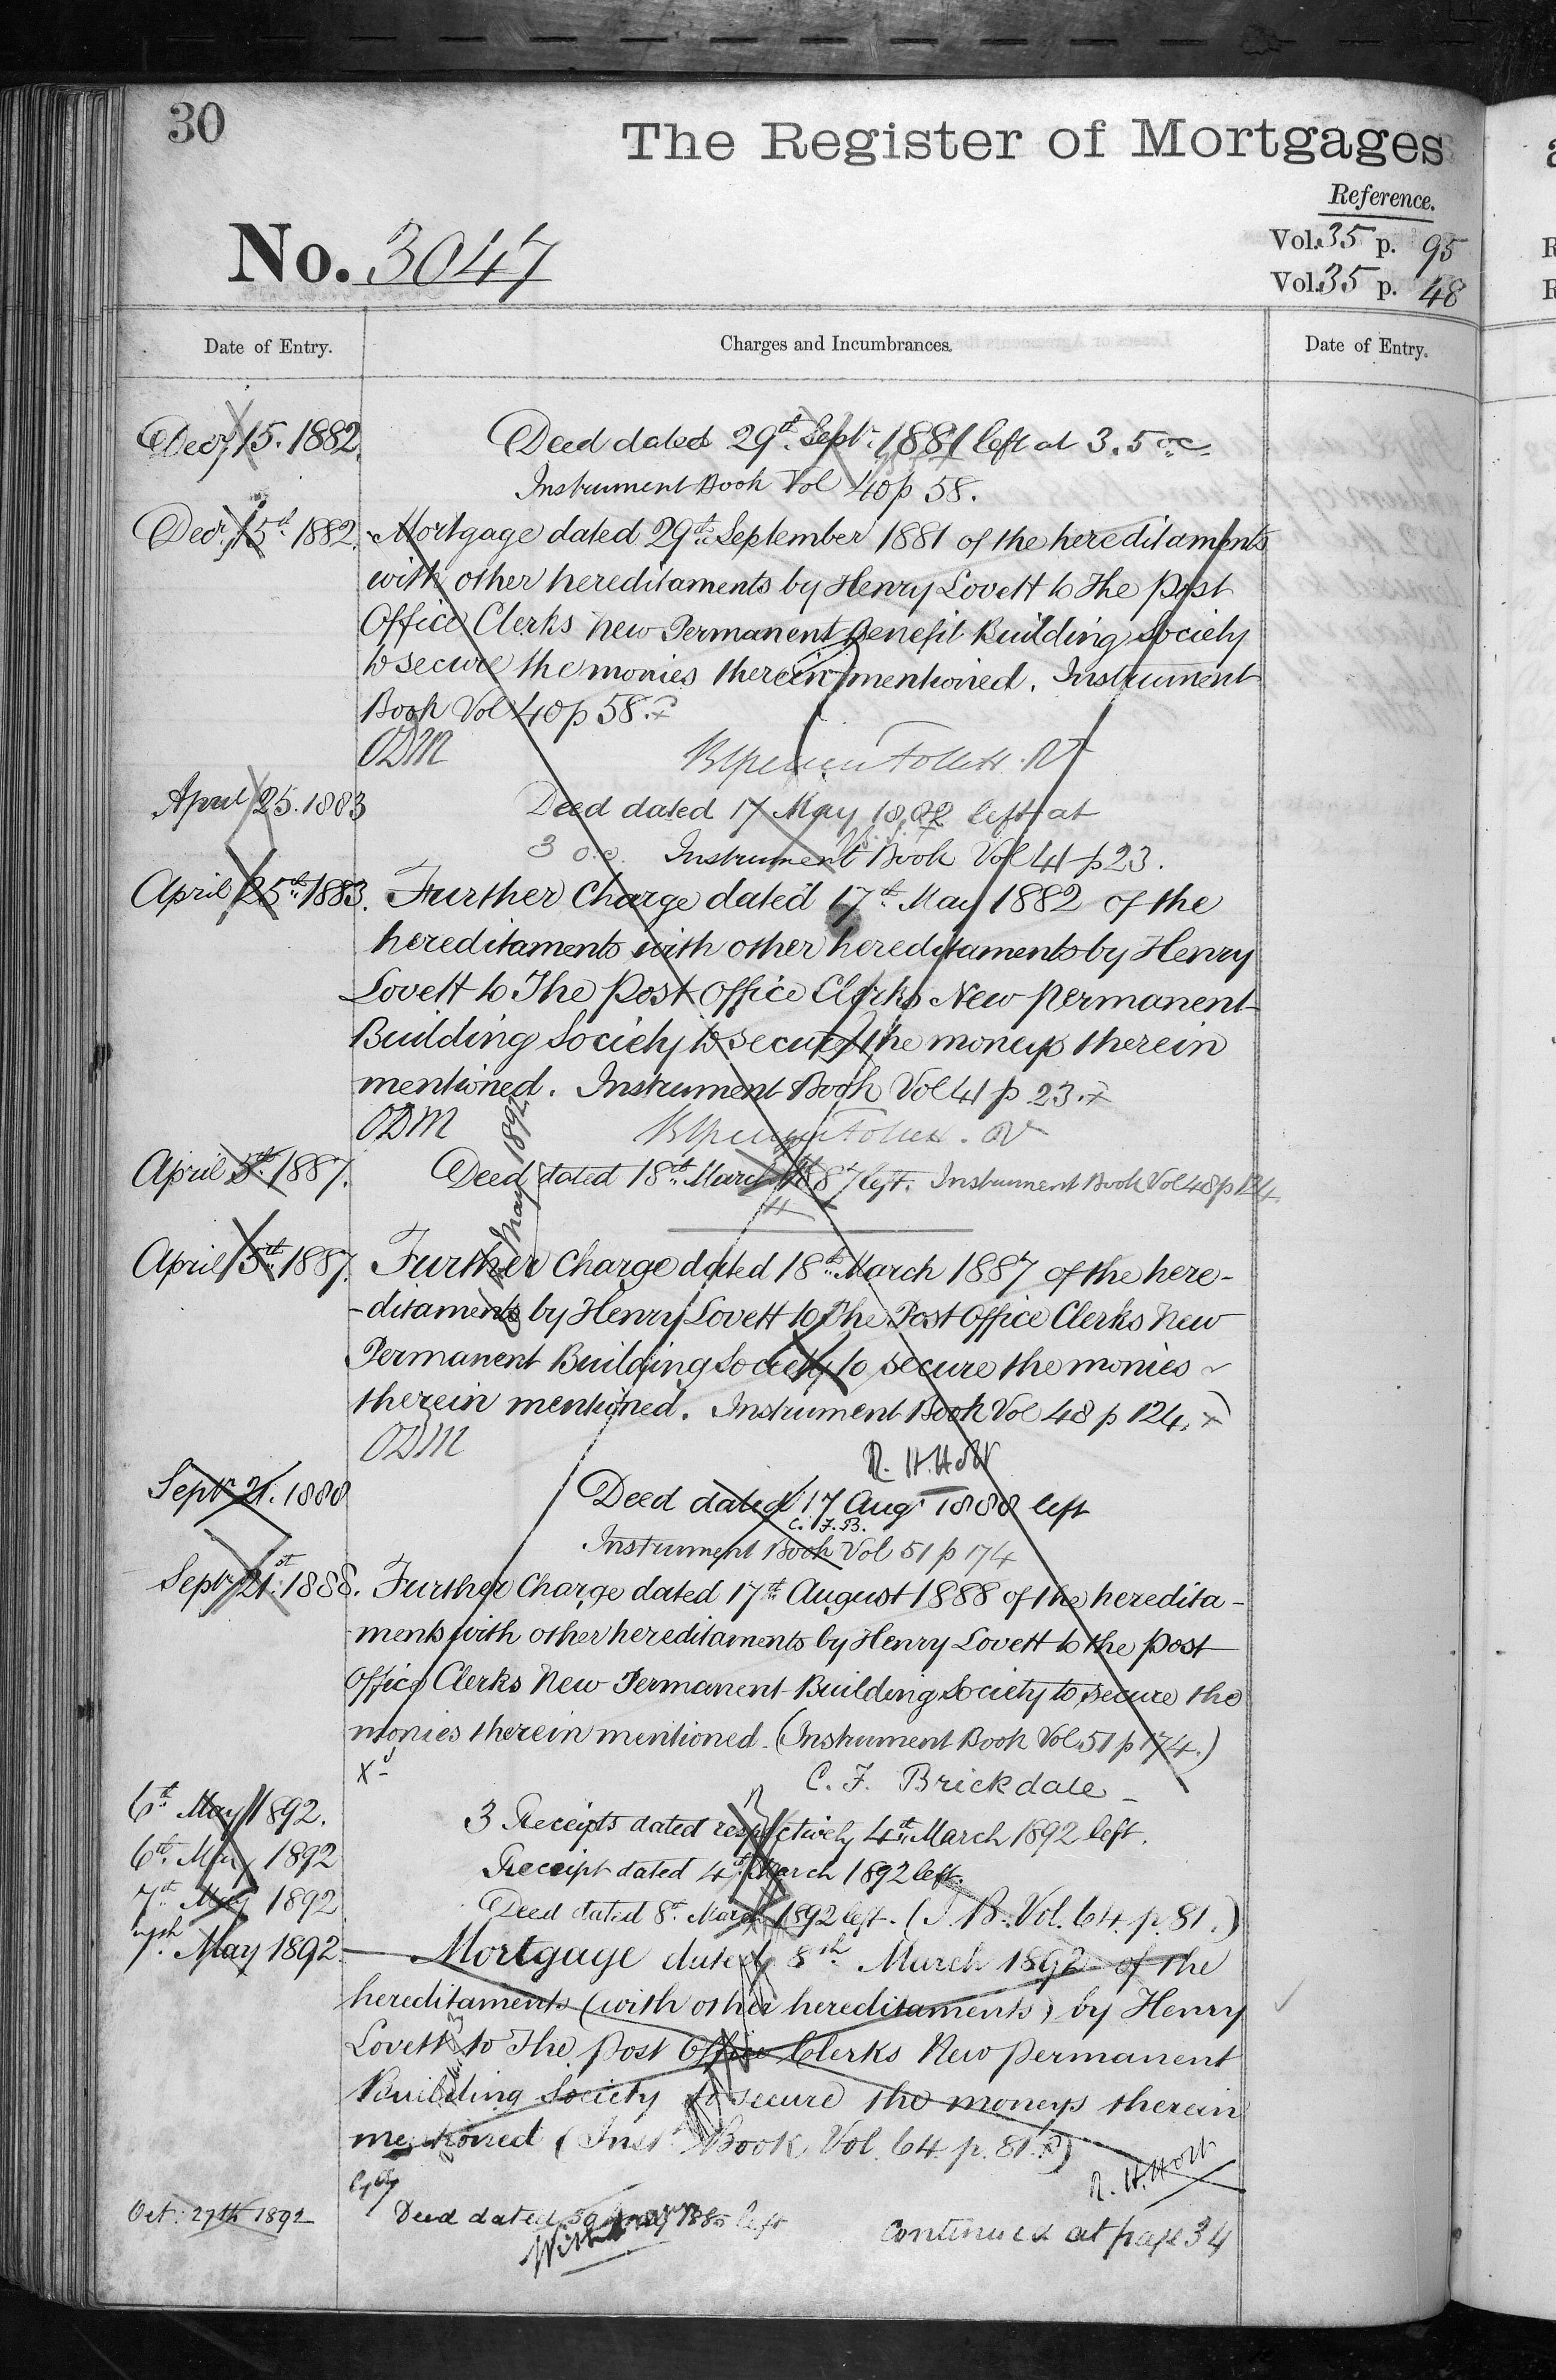 30
The Register of Mortgages
Reference.
No. 3047
Vol. 35 p. 95
Vol. 35 p. 48
Date of Entry.
Charges and Incumbrances.
Date of Entry.
Decr. 15. 1882.
Deed dated 29th Septr. 1881 left at 3.5 oc
Instrument Book Vol 40 p 58.
Decr. 15th 1882.
Mortgage dated 29th September 1881 of the hereditaments
with other hereditaments by Henry Lovett to The Post
Office Clerks New Permanent Benefit Building Society
to secure the monies therein mentioned. Instrument
Book Vol 40 p 58.
ODM
April 25. 1883
Deed dated 17 May 1882 left at
3 o.c. Instrument Book Vol 41 p 23.
April 25th 1883.
Further Charge dated 17th May 1882 of the
hereditaments with other hereditaments by Henry
Lovett to The Post Office Clerks New Permanent
Building Society to secure the moneys therein
mentioned. Instrument Book Vol 41 p 23.
ODM
May 1892
April 5th 1887.
Deed dated 18th March 1887 left. Instrument Book Vol 48 p 124
April 5th 1887.
Further Charge dated 18th March 1887 of the here-
-ditaments by Henry Lovett to The Post Office Clerks New
Permanent Building Society to secure the monies
therein mentioned. Instrument Book Vol 48 p 124.
ODM
R. H. Holt
Septr. 21. 1888
Deed dated 17 Augt 1888 left
C. F. B.
Instrument Book Vol 51 p 174
Septr. 21st 1888.
Further Charge dated 17th August 1888 of the heredita-
ments with other hereditaments by Henry Lovett to the Post
Office Clerks New Permanent Building Society to secure the
monies therein mentioned. (Instrument Book Vol 51 p 174.)
Xd
C. F. Brickdale
6th May 1892.
3 Receipts dated respectively 4th March 1892 left.
6th May 1892
Receipt dated 4th March 1892 left.
7th May 1892
Deed dated 8th March 1892 left. (I. B. Vol. 64. p. 81.)
7th May 1892
Mortgage dated 8th March 1892 of the
hereditaments (with other hereditaments) by Henry
Lovett to The Post Office Clerks New Permanent
Building Society to secure the moneys therein
mentioned (Inst. Book, Vol. 64. p. 81.)
R. H. Holt
Oct. 27th 1892
Deed dated May left
Continued at page 34